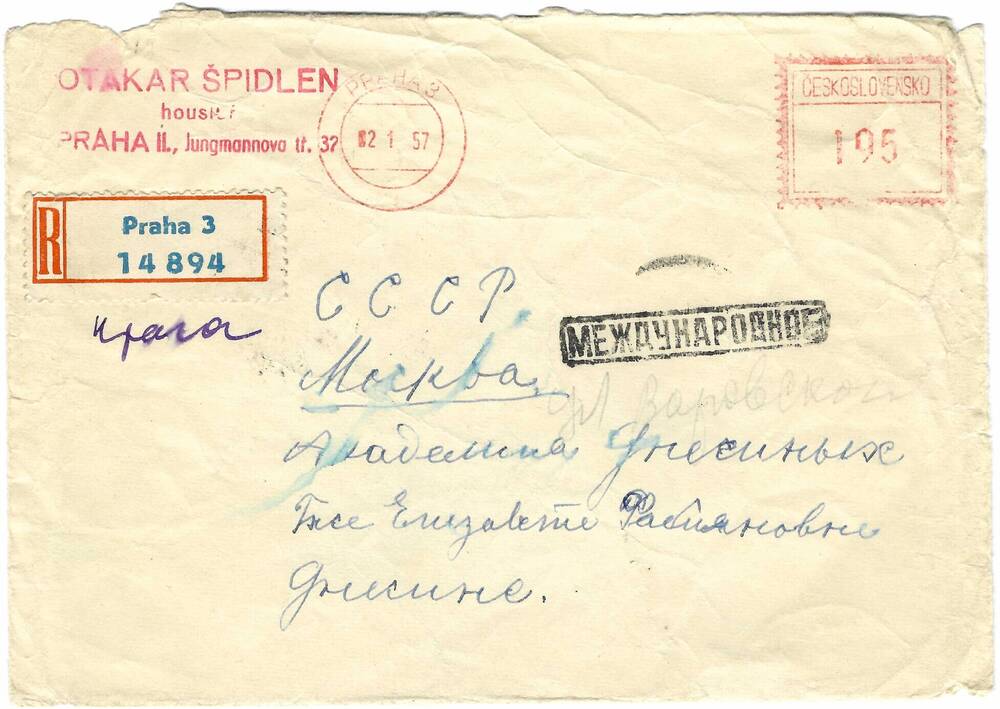 OTAKAR ŠPIDLEN
houslař
PRAHA II., Jungmannova tř. 32
PRAHA 3
02 1 57
ČESKOSLOVENSKO
195
R
Praha 3
14 894
Прага
СССР
МЕЖДУНАРОДНОЕ
Москва
ул Воровской
Академика Гнесиных
Гже Елизавете Фабияновне
Гнесине.